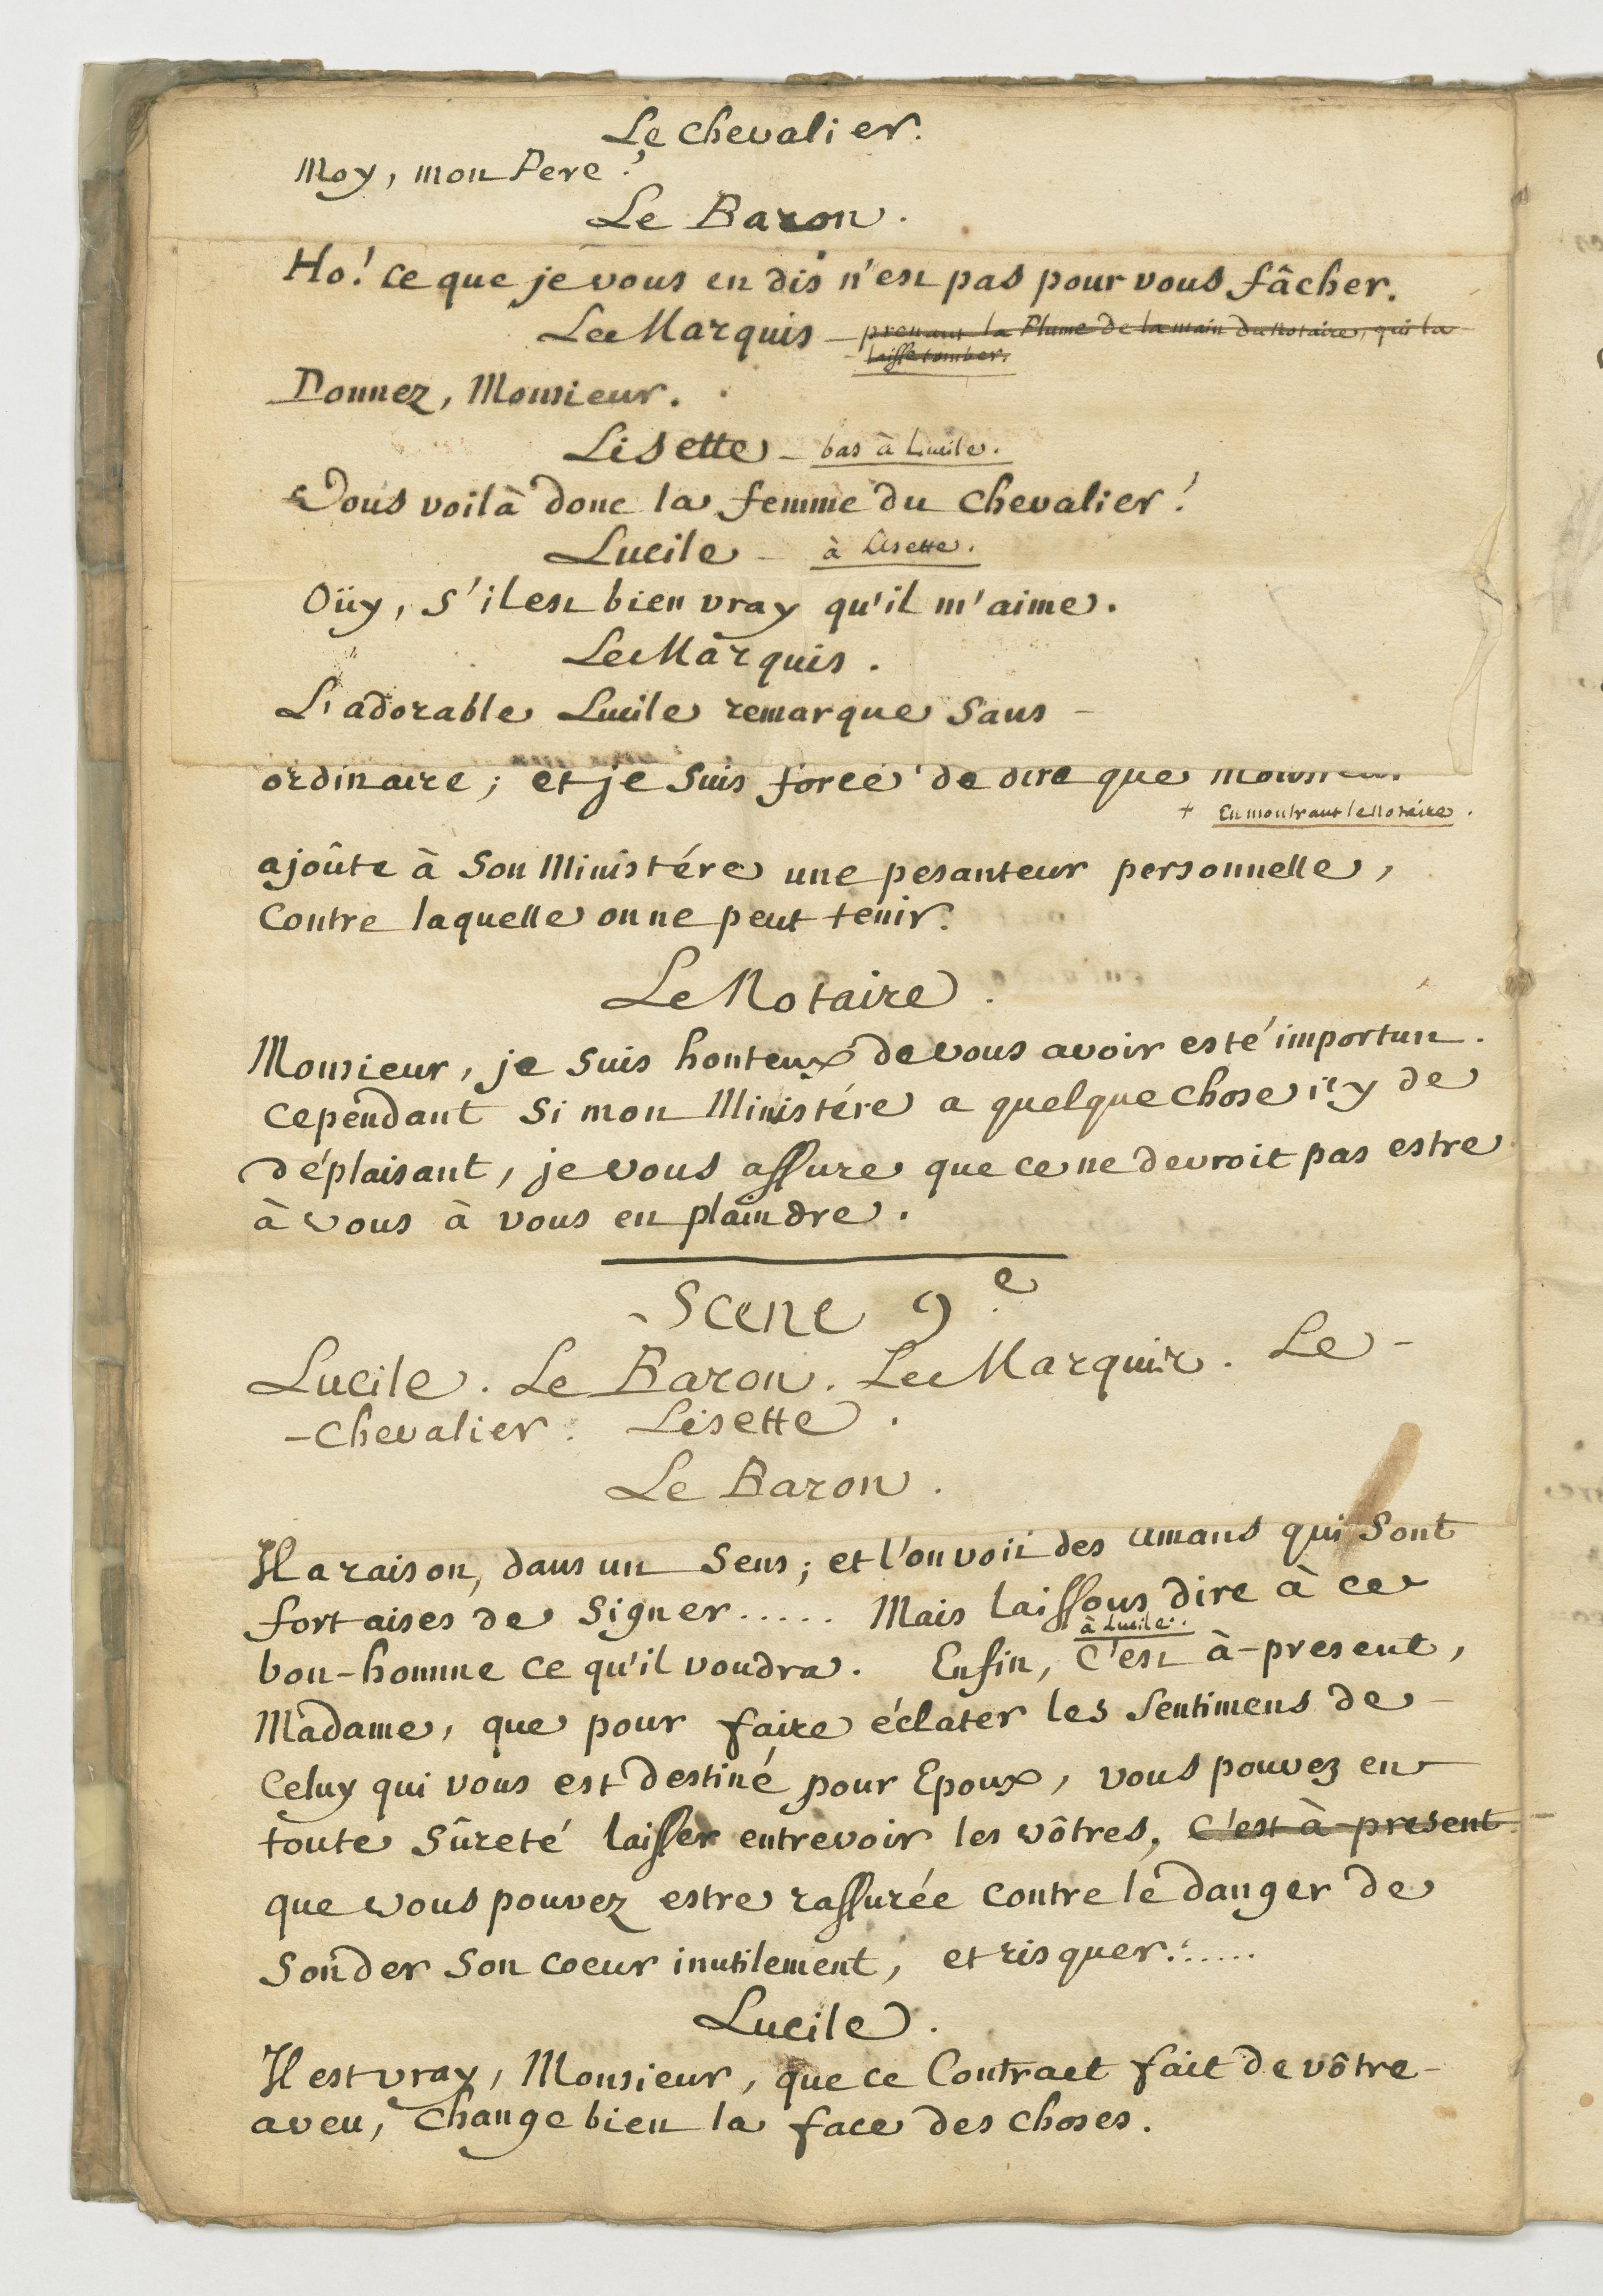 Le Chevalier.
Moy, mon Pere?
Le Baron.
Ho! ce que je vous en dis n'est pas pour vous fâcher.
Le Marquis – prenant la Plume de la main du Notaire, qui la
laisse tomber.
Donnez, Monsieur.
Lisette – bas à Lucile.
Vous voilà donc la femme du Chevalier!
Lucile – à Lisette.
Oüy, s'il est bien vray qu'il m'aime.
Le Marquis.
L'adorable Lucile remarque Sans –
ordinaire; et je Suis forcé de dire que Monsieur
+ En montrant le Notaire.
ajoûte à Son Ministére une pesanteur personnelle,
Contre laquelle on ne peut tenir.
Le Notaire.
Monsieur, je Suis honteux de vous avoir esté importun.
Cependant Si mon Ministére a quelque chose icy de
déplaisant, je vous assure que ce ne devroit pas estre
à vous à vous en plaindre.
Scene 9e.
Lucile. Le Baron. Le Marquis. Le –
– Chevalier. Lisette.
Le Baron.
Il a raison, dans un Sens; et l'on voit des amans qui Sont
fort aises de Signer..... Mais laissons dire à ce
à Lucile.
bon-homme ce qu'il voudra. Enfin, C'est à-present,
Madame, que pour faire éclater les Sentimens de –
Celuy qui vous est destiné pour Epoux, vous pouvez en
toute Sûreté laisser entrevoir les vôtres, C'est à-present –
que vous pouvez estre rassurée contre le danger de
Sonder Son coeur inutilement, et risquer......
Lucile.
Il est vray, Monsieur, que ce Contract fait de vôtre –
aveu, Change bien la face des choses.